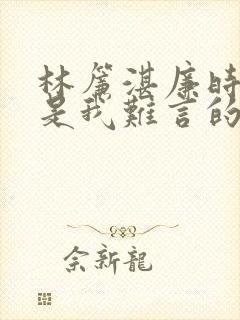 林篱湛廉時
是我難言的
佘新龍